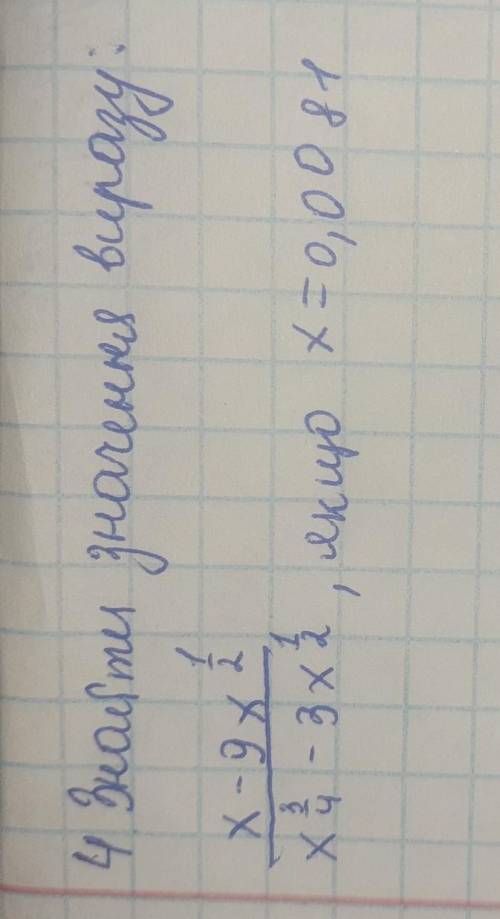 4 Знайти значення виразу:
x - 9x^{1/2}
x^{3/4} - 3x^{1/2} , якщо x = 0,0081